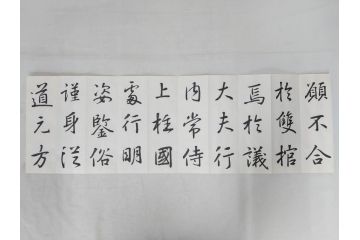 願不合
於雙棺
焉於議
大夫行
內常侍
上柱國
處行明
姿鑒俗
謹身從
道元方